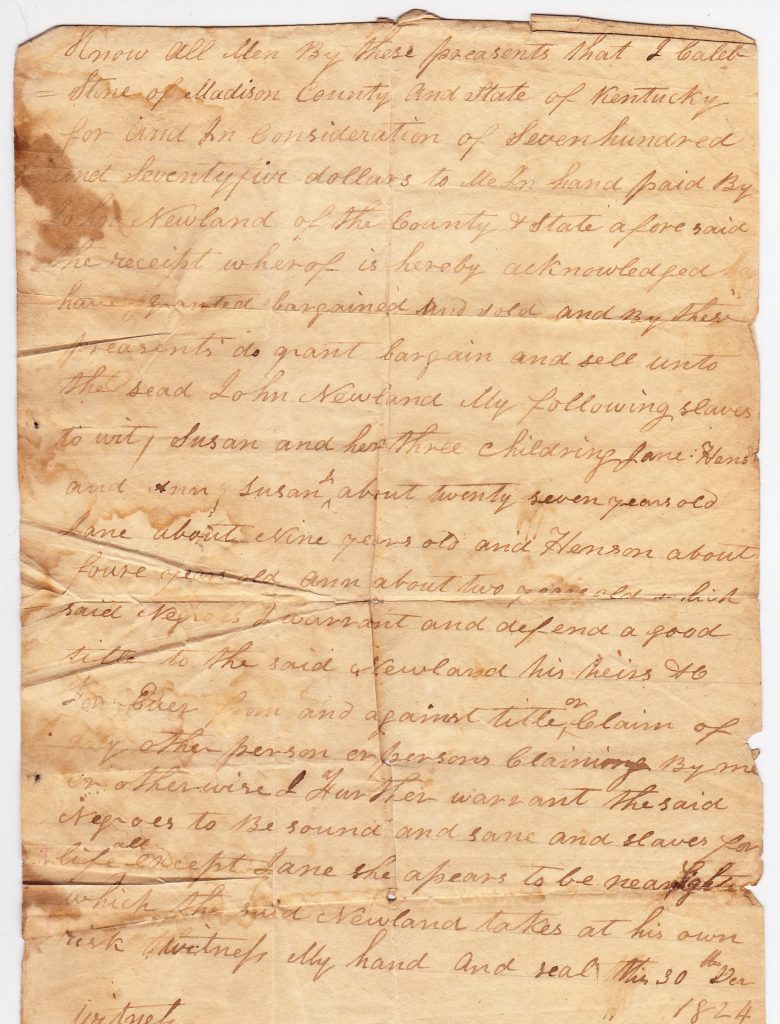 Know All Men By these preasents that I Caleb
= Stone of Madison County And State of Kentucky
for And In Consideration of Sevenhundred
and Seventyfive dollars to Me In hand paid By
John Newland of the County & State afore said
the receipt wherof is hereby acknowledged
have granted bargained And sold and By these
preasents do grant bargain and sell unto
the sead John Newland My following slaves
to wit, Susan and her three childring Jane Hens
and Ann, Susan is about twenty seven years old
Jane about Nine years old and Henson about
foure years old Ann about two years old which
said Negros I warrant and defend a good
title to the said Newland his heirs &C
for Ever from and against title or Claim of
any other person or persons Claiming By me
or otherwise I Further warrant the said
Negroes to Be sound and sane and slaves for
life all except Jane she apears to be near
which the said Newland takes at his own
risk Witness My hand And seal this 30th Der
Witness " 1824